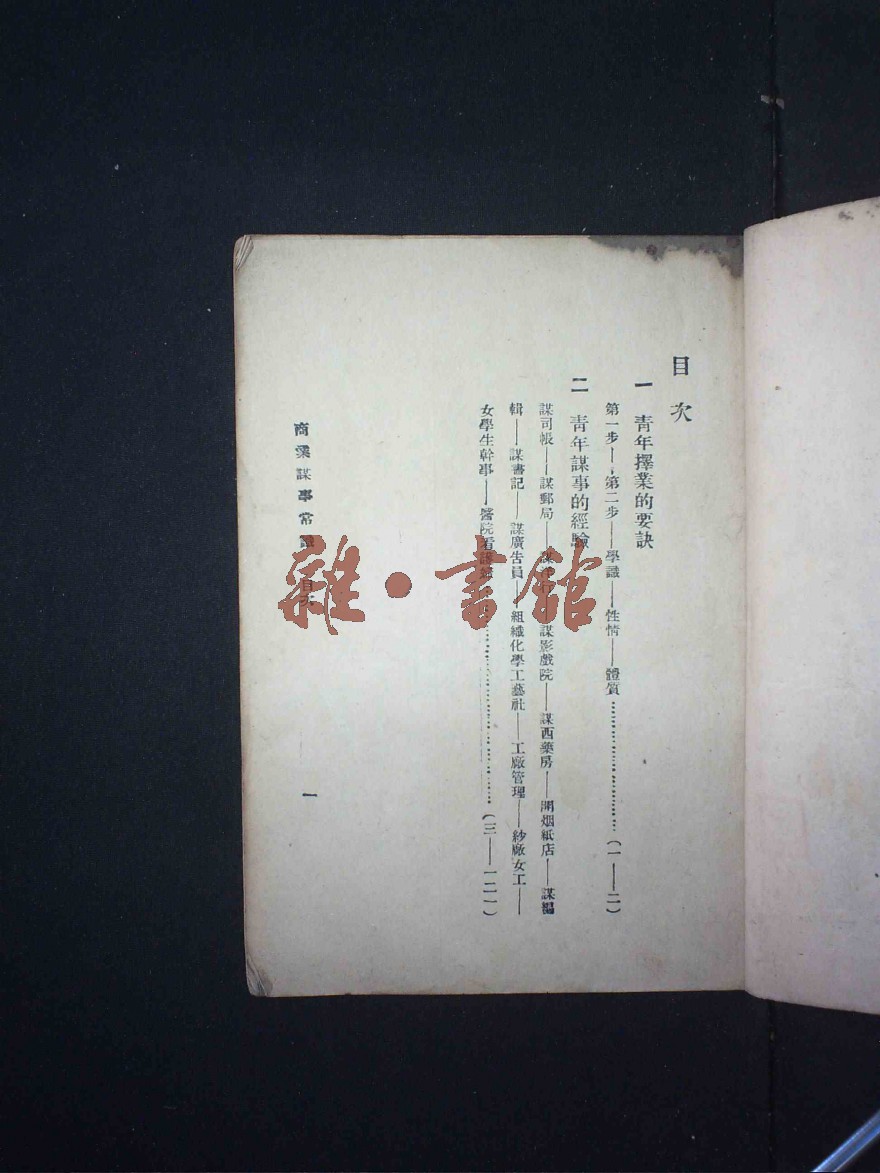 目次
一 青年擇業的要訣
第一步——第二步——學識——性情——體質……………………(一——二)
二 青年謀事的經驗
謀司帳——謀郵局——謀洋行——謀影戲院——謀西藥房——開烟紙店——謀編
輯——謀書記——謀廣告員——組織化學工藝社——工廠管理——紗廠女工——
女學生幹事——醫院看護……………………(三——一二一)
商業謀事常識 目次
一
雜·書館